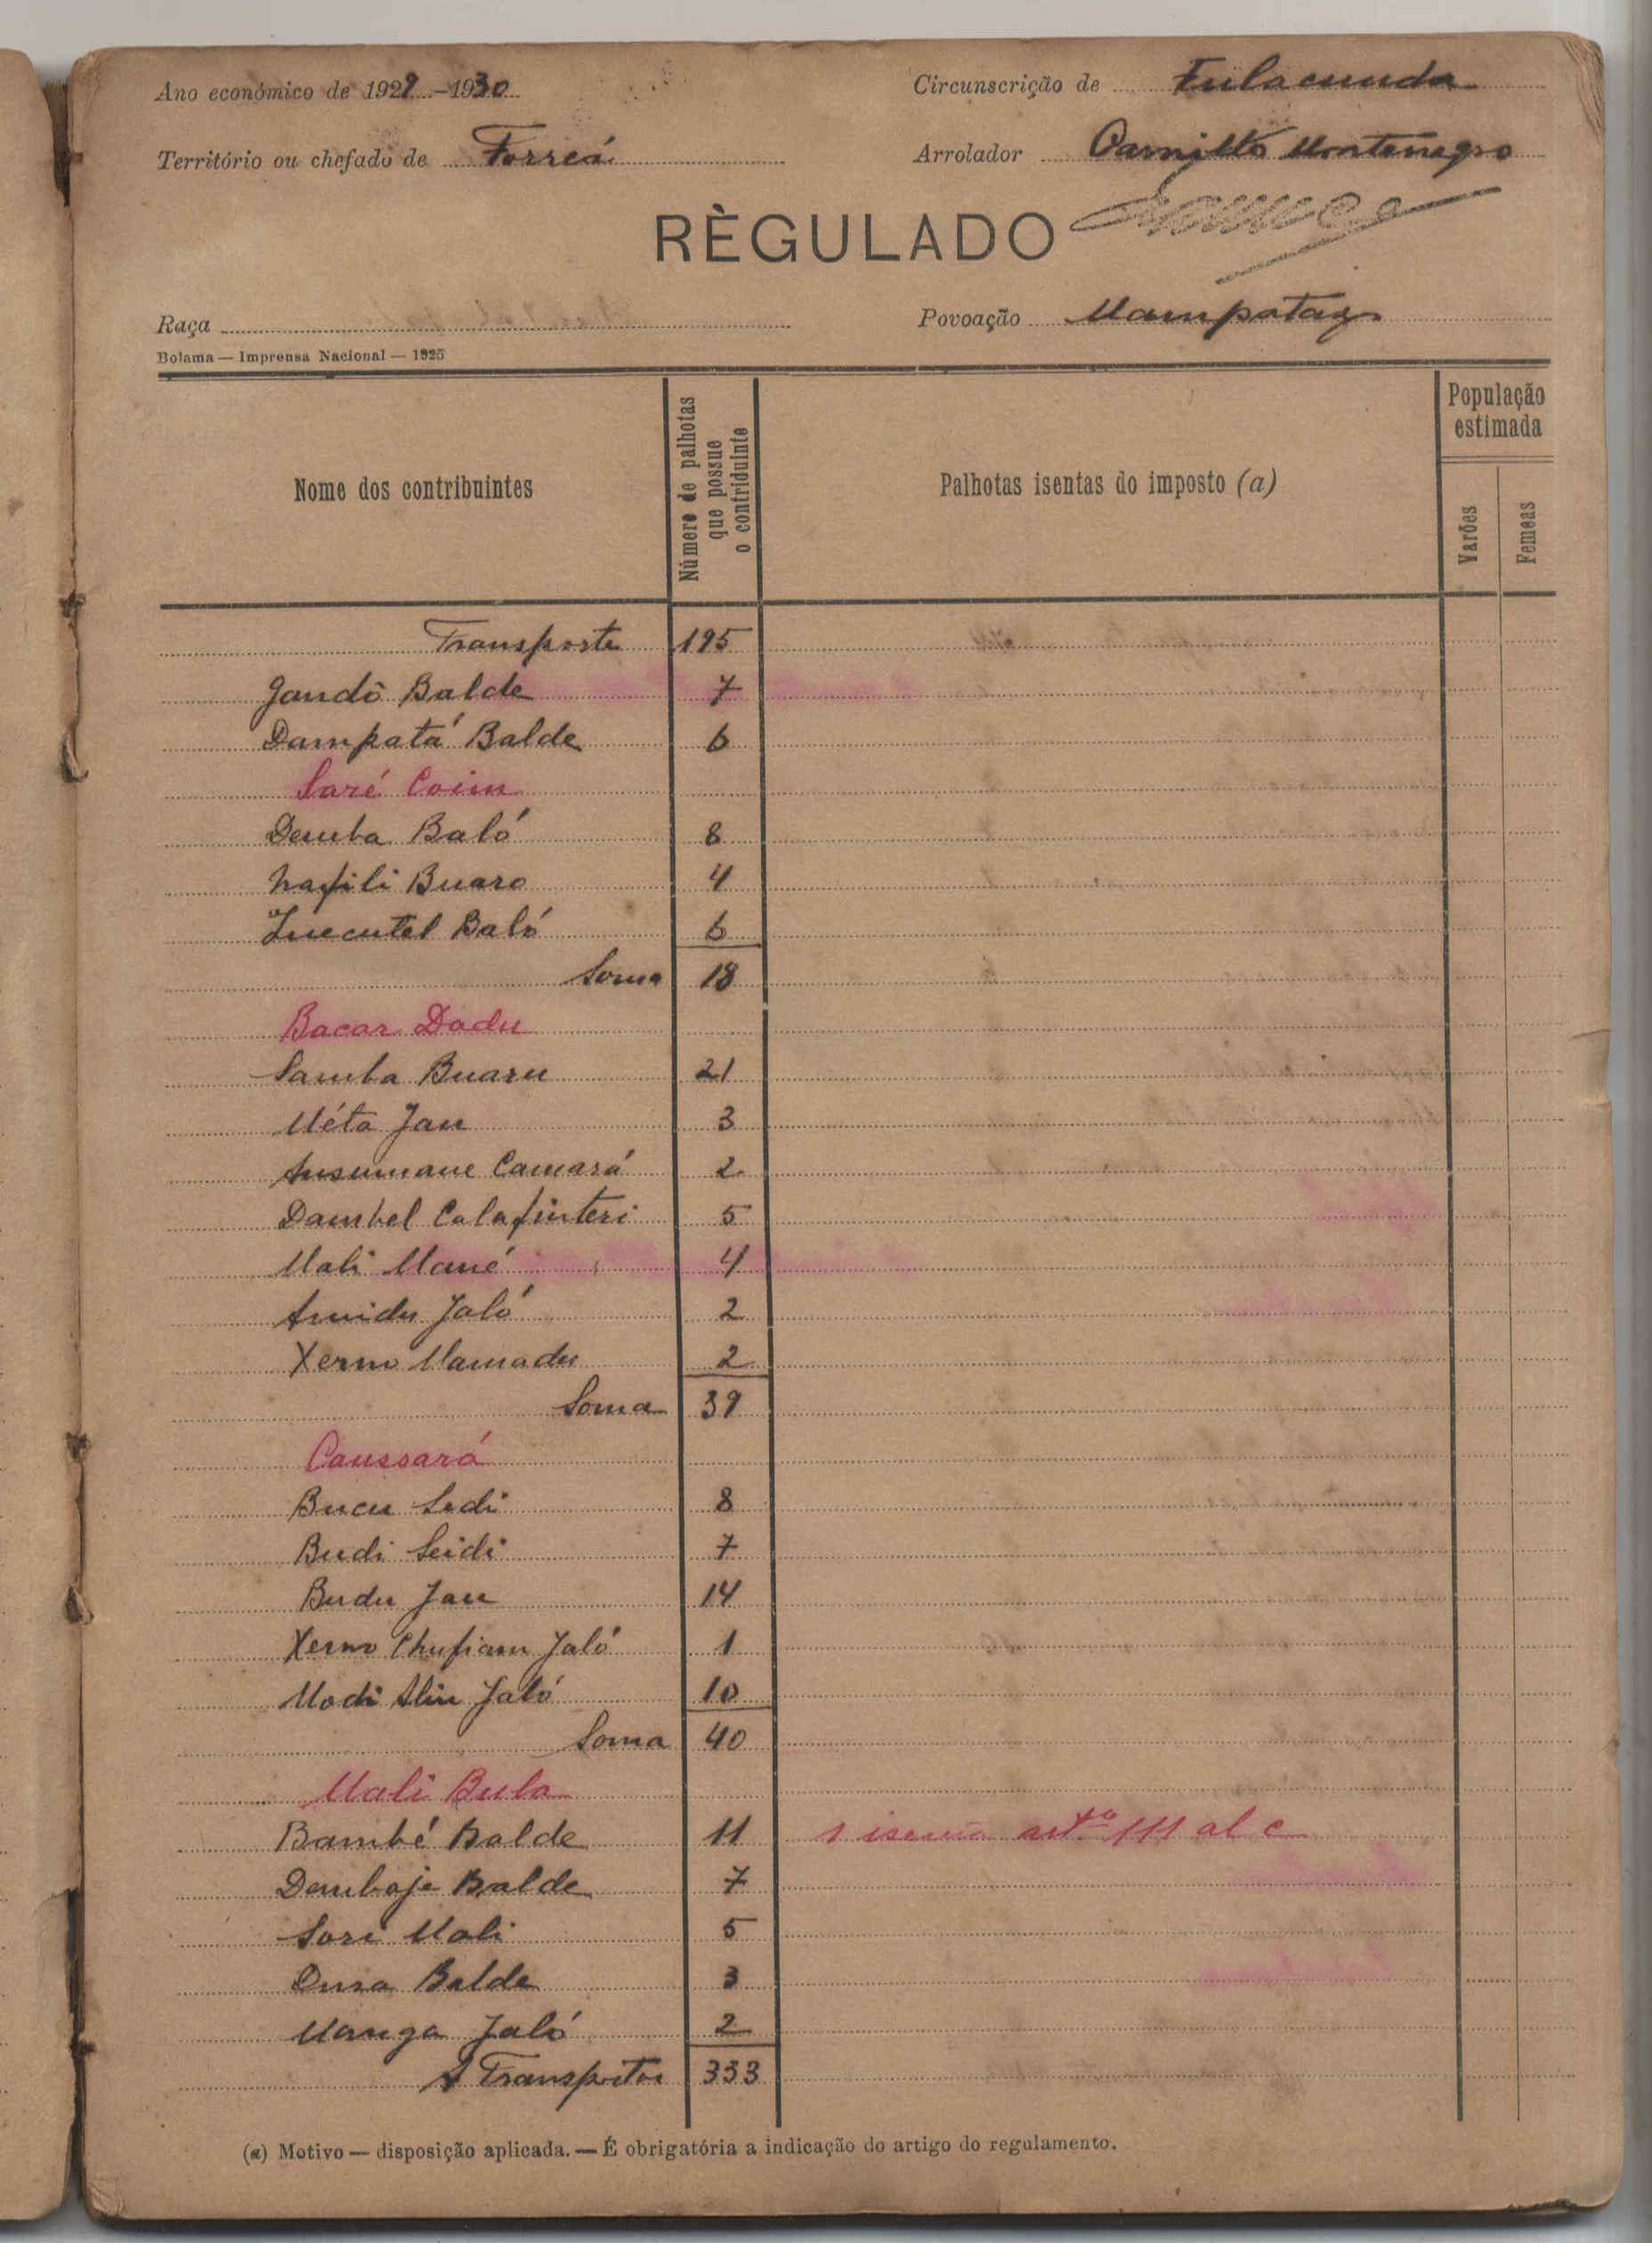 Ano económico de 1929-1930
Circunscrição de Fulacunda
Território ou chefado de Forreá
Arrolador Carmitto Montenegro
RÈGULADO
Raça
Povoação Mampataz
Bolama — Imprensa Nacional — 1925
Nome dos contribuintes
Número de palhotas que possue o contriduinte
Palhotas isentas do imposto (a)
População estimada
Varões
Femeas
Transporte 195
Jandô Balde 7
Dampatá Balde 6
Saré Coim
Demba Baló 8
Nafili Buaro 4
Baló 6
Soma 18
Bacar Dadu
Samba Buaru 21
Méta Jau 3
Ansumane Camará 2
Dambel Calafinteri 5
Mali Mané 4
Amidu Jaló 2
Xerno Mamadu 2
Soma 39
Caussará
Bucu Sedi 8
Budi Seidi 7
Budu Jau 14
Xerno Chufiam Jaló 1
Modi Aliu Jaló 10
Soma 40
Mali Bula
Bambé Balde 11 1 isenta artº 111 al c
Dembaje Balde 7
Sori Mali 5
Balde 3
Manga Jaló 2
A Transportar 333
(a) Motivo — disposição aplicada. — É obrigatória a indicação do artigo do regulamento.